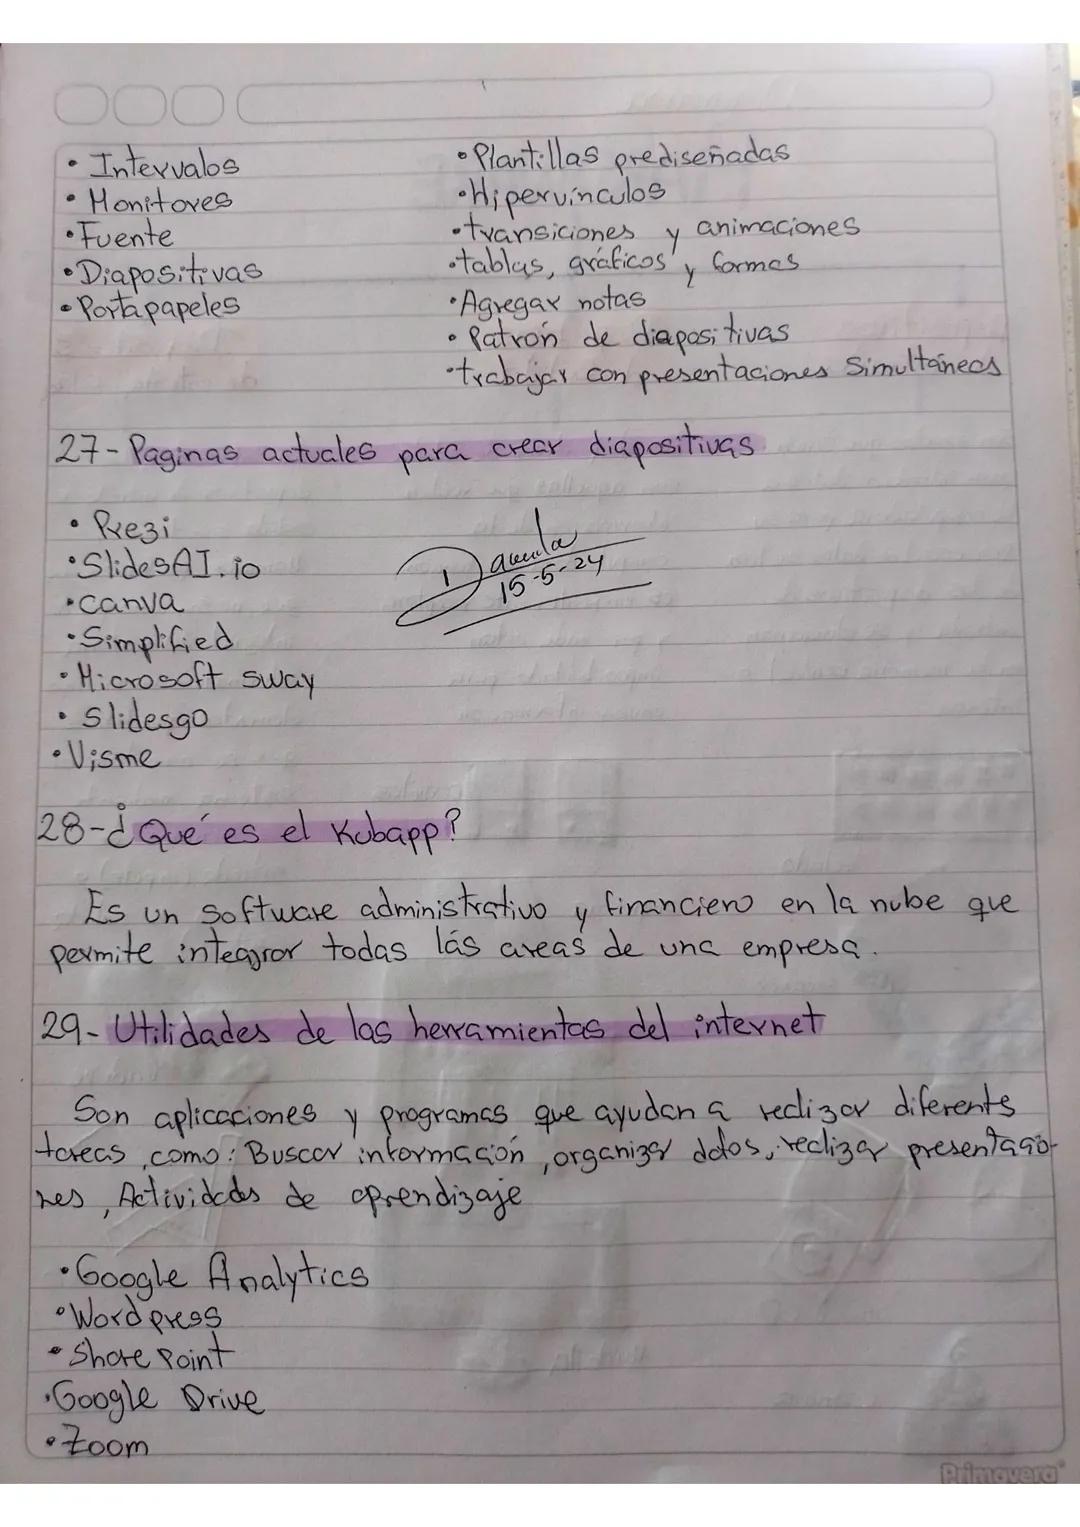 • Intervalos
• Monitores
• Fuente
• Diapositivas
• Portapapeles
• Plantillas prediseñadas
• Hipervínculos
• transiciones y animaciones
• tablas, gráficos y formas
• Agregar notas
• Patrón de diapositivas
• trabajar con presentaciones Simultáneas
27- Paginas actuales para crear diapositivas
• Prezi
• SlidesAI.io
• canva
• Simplified
• Microsoft sway
• Slidesgo
• Visme
15-5-24
28- ¿Qué es el Kubapp?
Es un software administrativo y financiero en la nube que
permite integrar todas lás areas de una empresa.
29- Utilidades de las herramientas del internet
Son aplicaciones y programas que ayudan a realizar diferents
tareas, como: Buscar información, organizar datos, realizar presentacio-
nes, Actividads de aprendizaje
• Google Analytics
• Wordpress
• Share Point
• Google Drive
• Zoom
Primavera